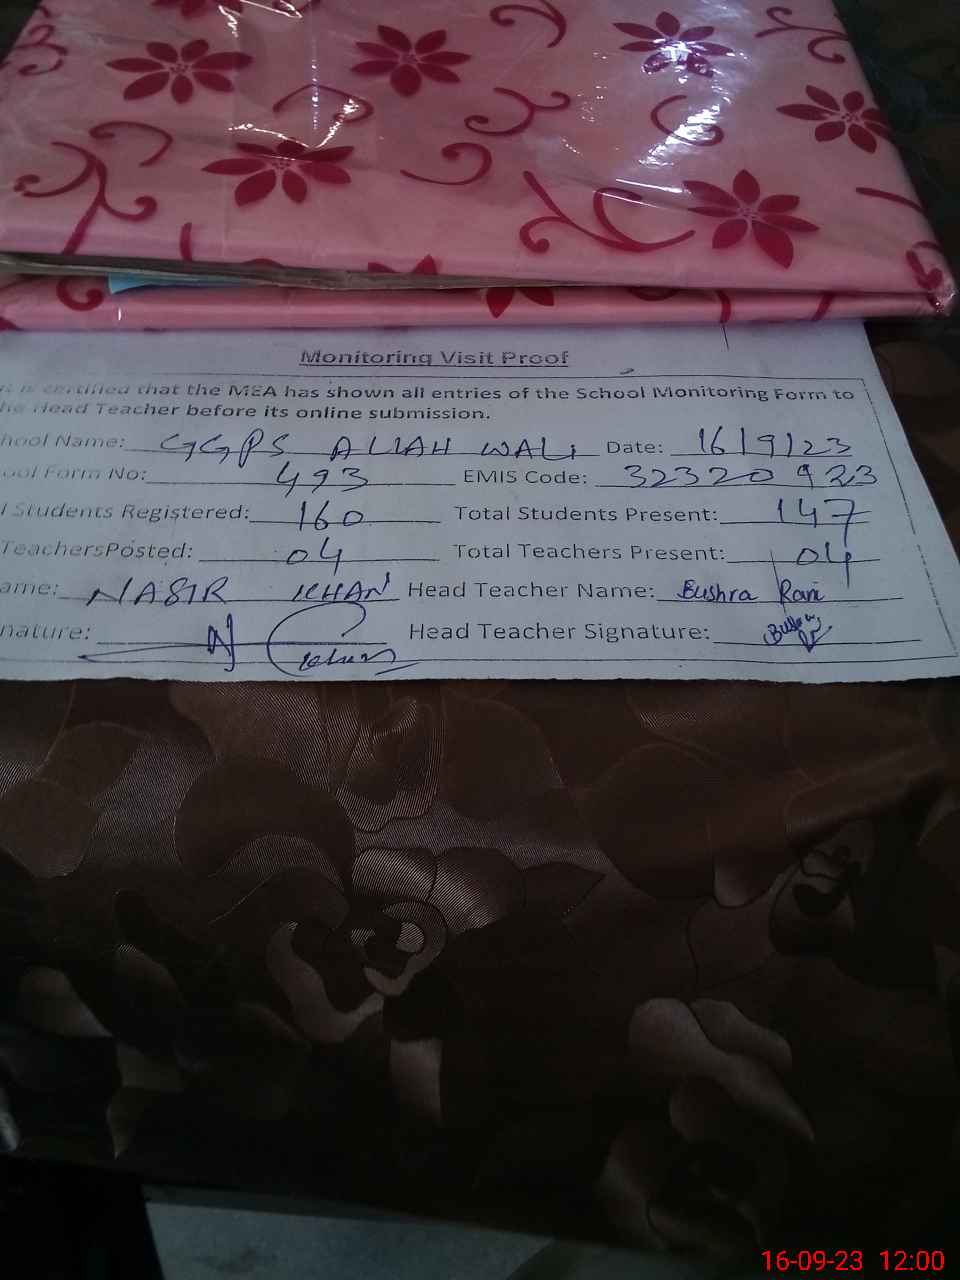 Monitoring Visit Proof
is certified that the MEA has shown all entries of the School Monitoring Form to
he Head Teacher before its online submission.
hool Name: GGPS ALLAH WALI Date: 16/9/23
ool Form No: 493 EMIS Code: 32320923
l Students Registered: 160 Total Students Present: 147
TeachersPosted: 04 Total Teachers Present: 04
ame: NASIR KHAN Head Teacher Name: Bushra Rani
nature: Khan Head Teacher Signature: Bushra
16-09-23 12:00